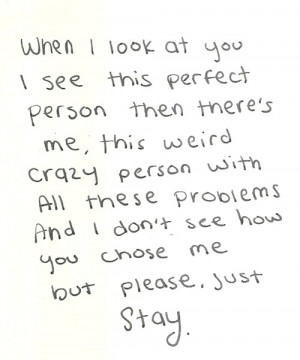 When I look at you
I see this perfect
person then there's
me, this weird
crazy person with
All these problems
And I don't see how
you chose me
but please, just
Stay.